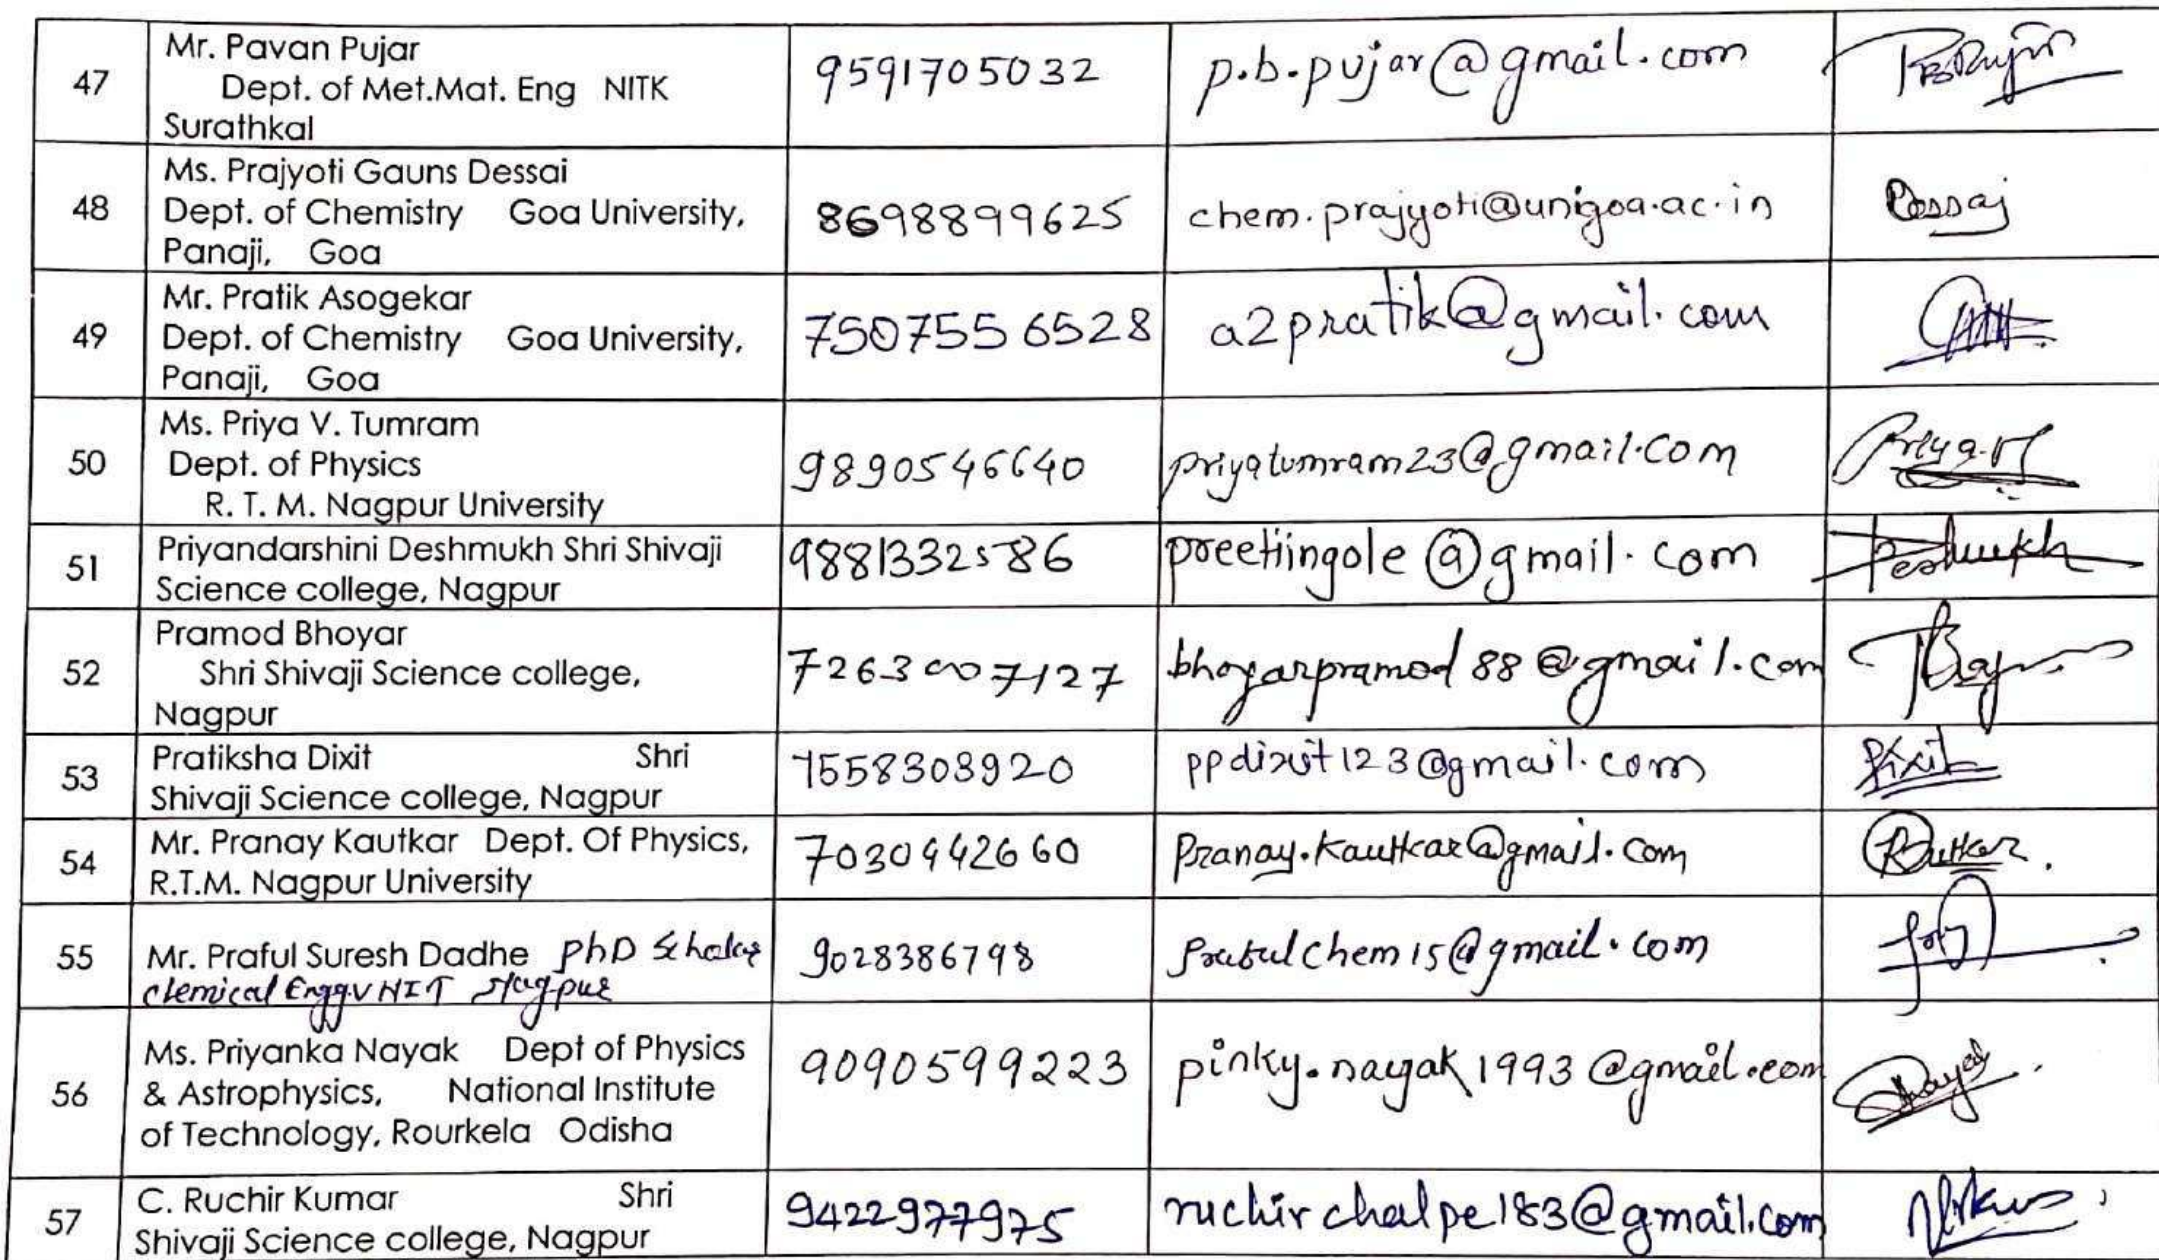 47 Mr. Pavan Pujar
Dept. of Met.Mat. Eng NITK
Surathkal
9591705032 p.b.pujar@gmail.com
48 Ms. Prajyoti Gauns Dessai
Dept. of Chemistry Goa University,
Panaji, Goa
8698899625 chem.prajyoti@unigoa.ac.in Dessai
49 Mr. Pratik Asogekar
Dept. of Chemistry Goa University,
Panaji, Goa
7507556528 a2pratik@gmail.com
50 Ms. Priya V. Tumram
Dept. of Physics
R. T. M. Nagpur University
9890546640 priyatumram23@gmail.com
51 Priyandarshini Deshmukh Shri Shivaji
Science college, Nagpur
9881332586 preetiingole@gmail.com Deshmukh
52 Pramod Bhoyar
Shri Shivaji Science college,
Nagpur
7263007127 bhoyarpramod88@gmail.com
53 Pratiksha Dixit Shri
Shivaji Science college, Nagpur
7558303920 ppdixit123@gmail.com Dixit
54 Mr. Pranay Kautkar Dept. Of Physics,
R.T.M. Nagpur University
7030442660 Pranay.kautkar@gmail.com
55 Mr. Praful Suresh Dadhe PhD Scholar
chemical Engg VNIT Nagpur
9028386798 prafulchem15@gmail.com
56 Ms. Priyanka Nayak Dept of Physics
& Astrophysics, National Institute
of Technology, Rourkela Odisha
9090599223 pinky.nayak1993@gmail.com
57 C. Ruchir Kumar Shri
Shivaji Science college, Nagpur
9422977975 ruchirchalpe183@gmail.com